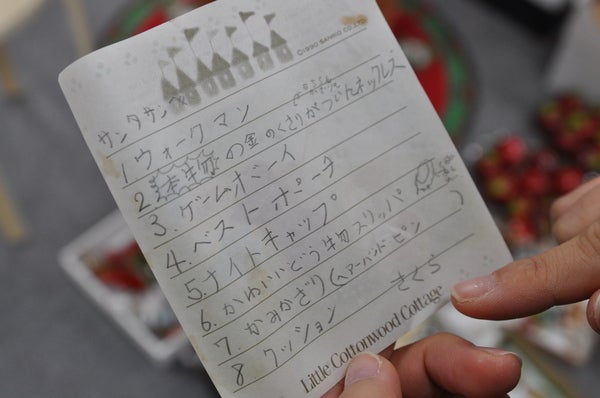 ©1990 SANRIO CO.,LTD.
サンタさんへ
1 ウォークマン
2. 本物の金のくさりがついたネックレス
3. ゲームボーイ
4. ベストポーチ
5. ナイトキャップ
6. かわいいどう物スリッパ
7. かみかざり(ヘアーバンド・ピン)
8 クッション さくら
Little Cottonwood Cottage